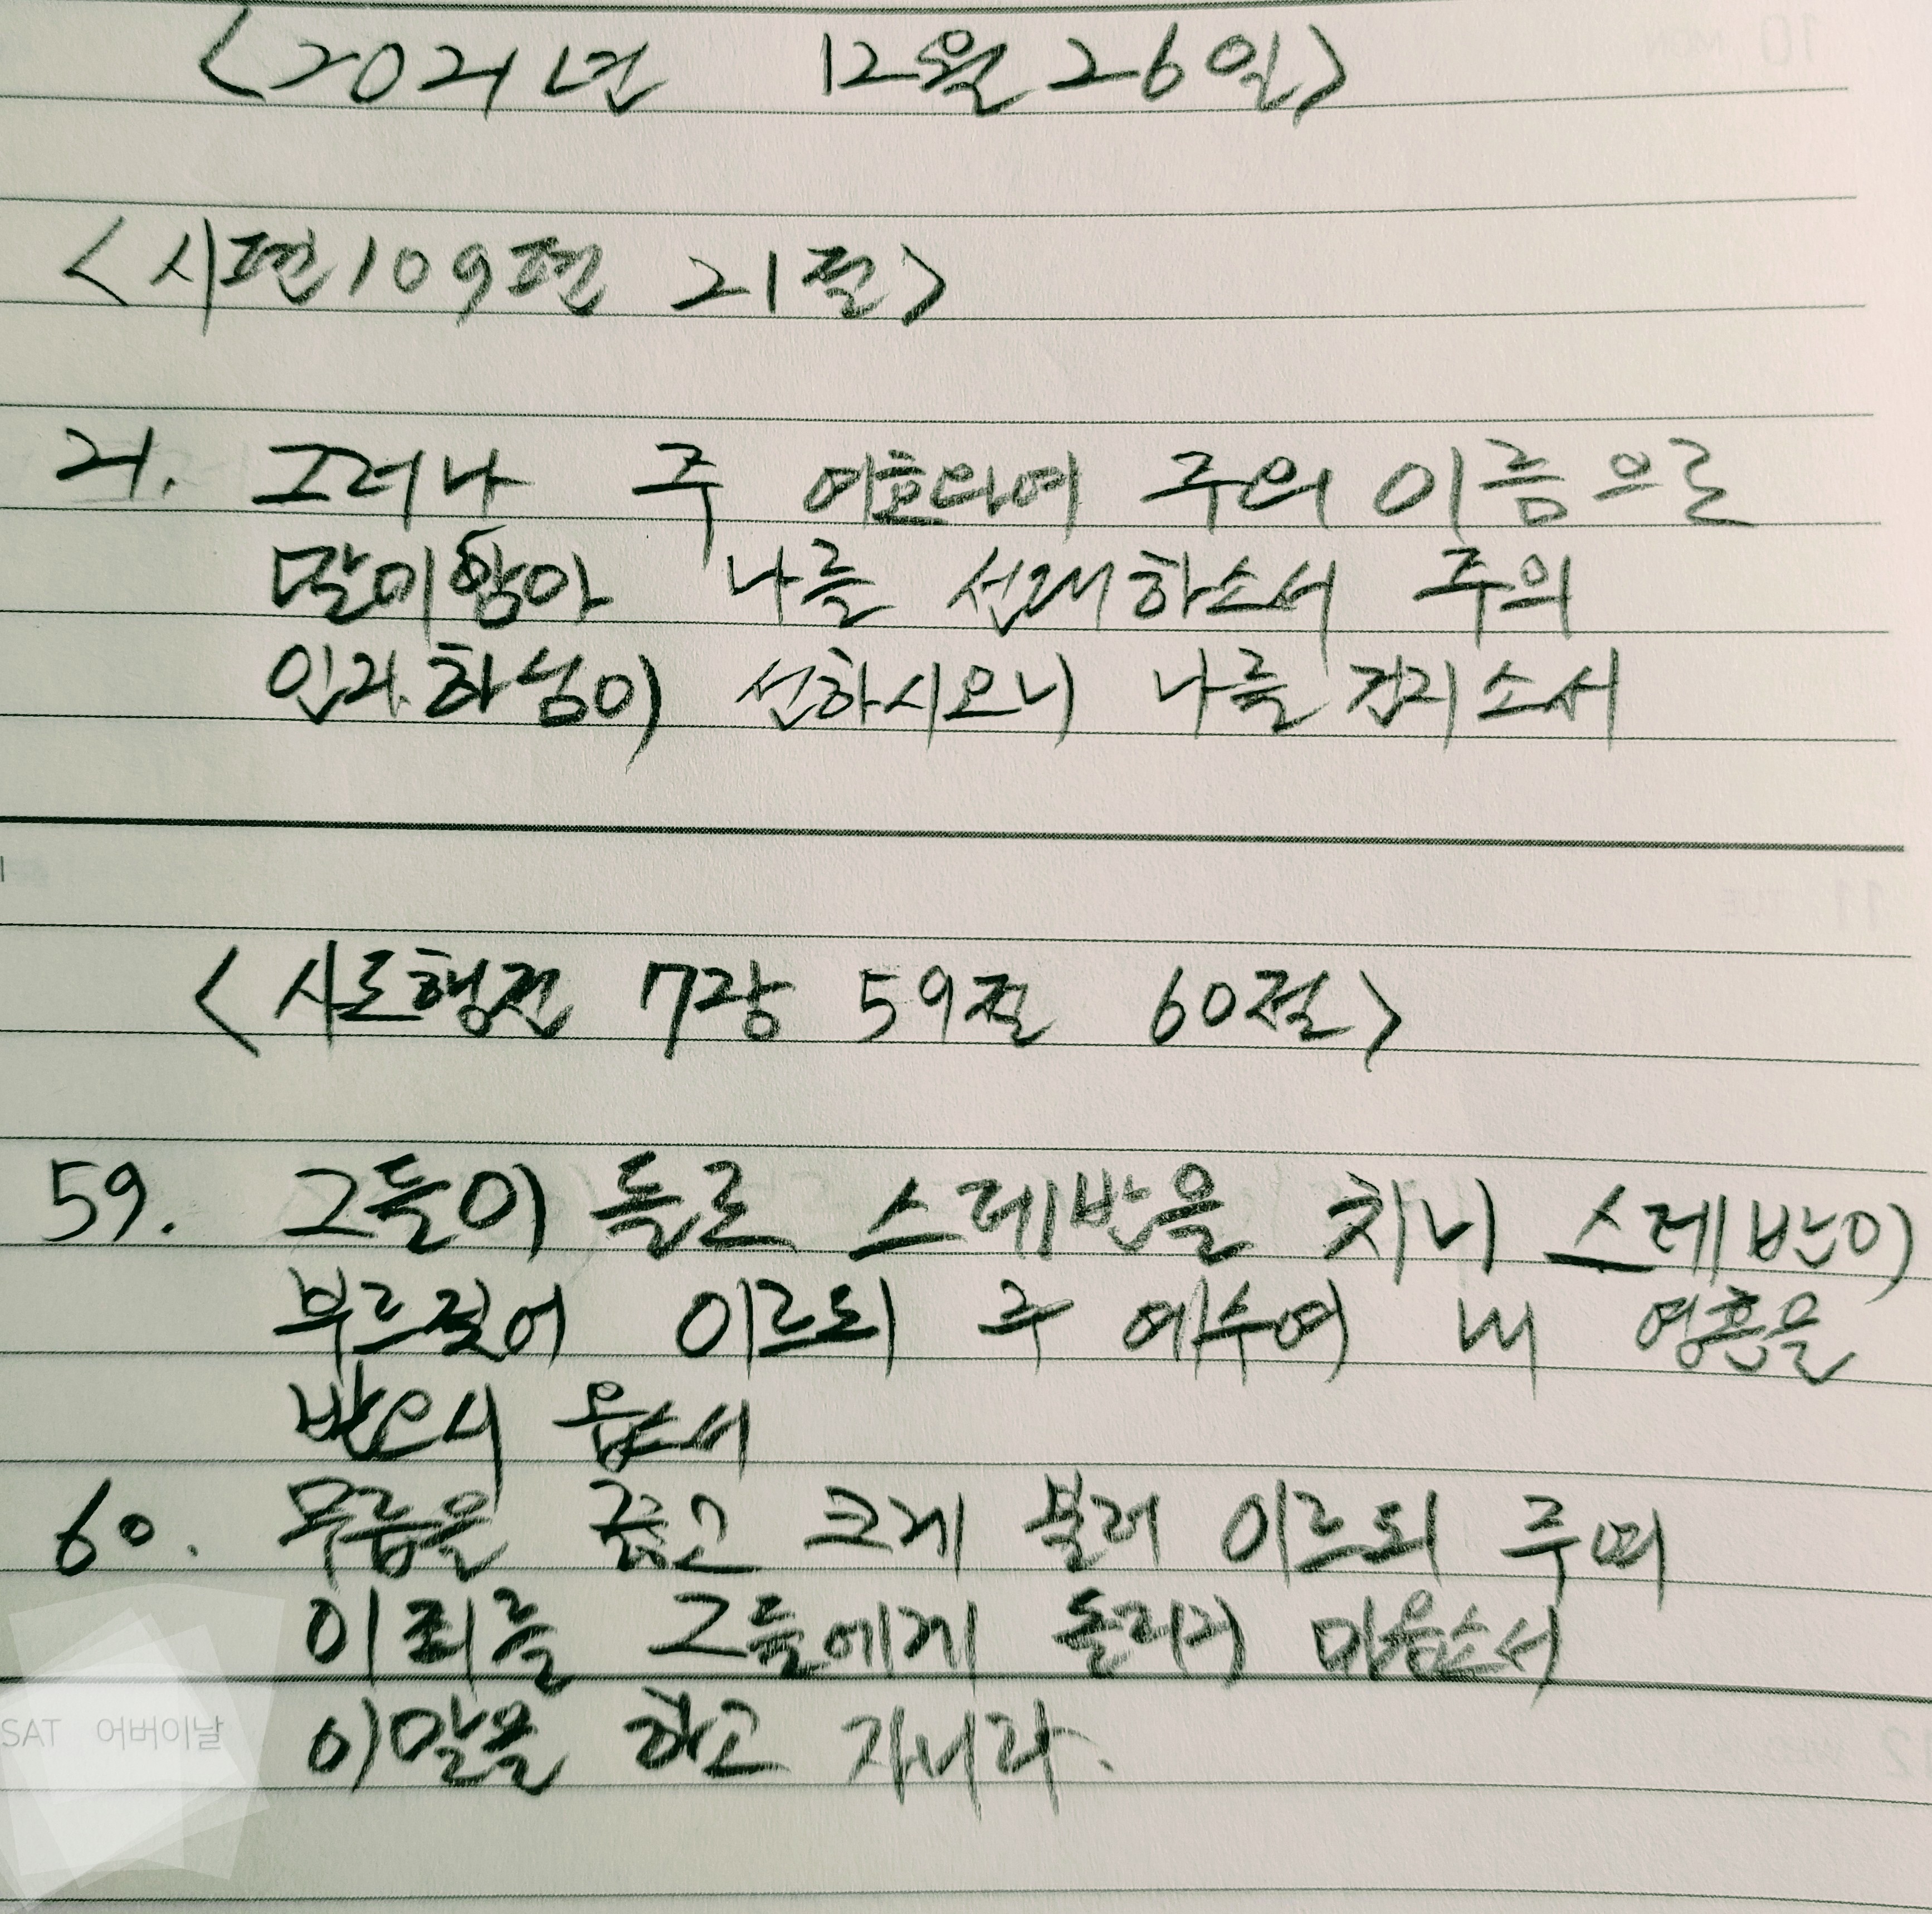 <2021년 12월 26일>
<시편109편 21절>
21. 그러나 주 여호와여 주의 이름으로
말미암아 나를 선대하소서 주의
인자하심이 선하시오니 나를 건지소서
<사도행전 7장 59절 60절>
59. 그들이 돌로 스데반을 치니 스데반이
부르짖어 이르되 주 예수여 내 영혼을
받으시 옵소서
60. 무릎을 꿇고 크게 불러 이르되 주여
이 죄를 그들에게 돌리지 마옵소서
이 말을 하고 자니라.
SAT 어버이날